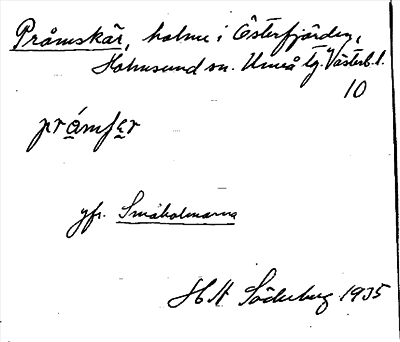 Pråmskär, holme i Österfjärden,
Holmsund sn. Umeå tg. Västerb. l.
10
prámfer
yfr. Småholmarna
H A Söderberg 1935